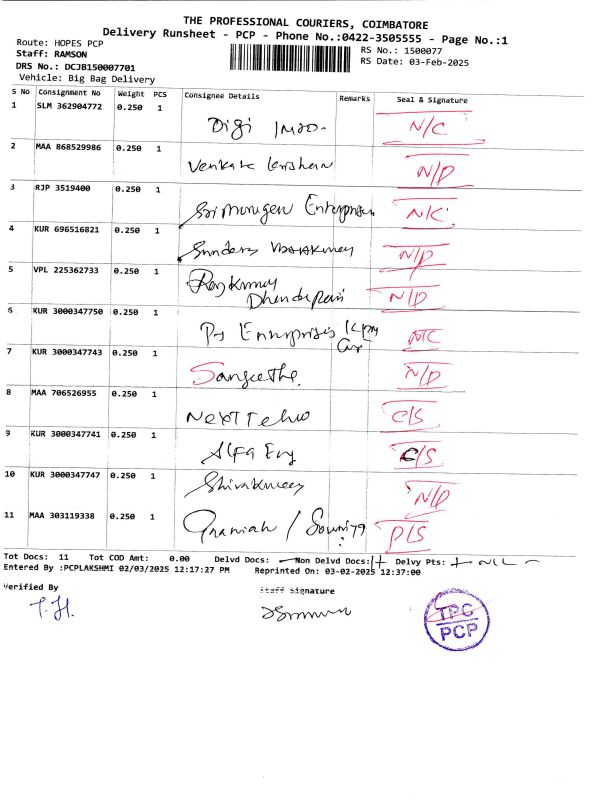 THE PROFESSIONAL COURIERS, COIMBATORE
Delivery Runsheet - PCP - Phone No.:0422-3505555 - Page No.:1
Route: HOPES PCP
RS No.: 1500077
Staff: RAMSON
RS Date: 03-Feb-2025
DRS No.: DCJB150007701
Vehicle: Big Bag Delivery
S No Consignment No Weight PCS Consignee Details Remarks Seal & Signature
1 SLM 362904772 0.250 1 Digi N/C
2 MAA 868529986 0.250 1 N/D
3 RJP 3519400 0.250 1 Sri Murugan Enterprises N/C
4 KUR 696516821 0.250 1 N/D
5 VPL 225362733 0.250 1 N/D
6 KUR 3000347750 0.250 1 Enterprises N/C
7 KUR 3000347743 0.250 1 Sangeetha N/D
8 MAA 706526955 0.250 1 Next C/S
9 KUR 3000347741 0.250 1 Alfa C/S
10 KUR 3000347747 0.250 1 N/D
11 MAA 303119338 0.250 1 / D/S
Tot Docs: 11 Tot COD Amt: 0.00 Delvd Docs: Non Delvd Docs: Delvy Pts:
Entered By :PCPLAKSHMI 02/03/2025 12:17:27 PM Reprinted On: 03-02-2025 12:37:00
Verified By
Staff Signature
TPC
PCP